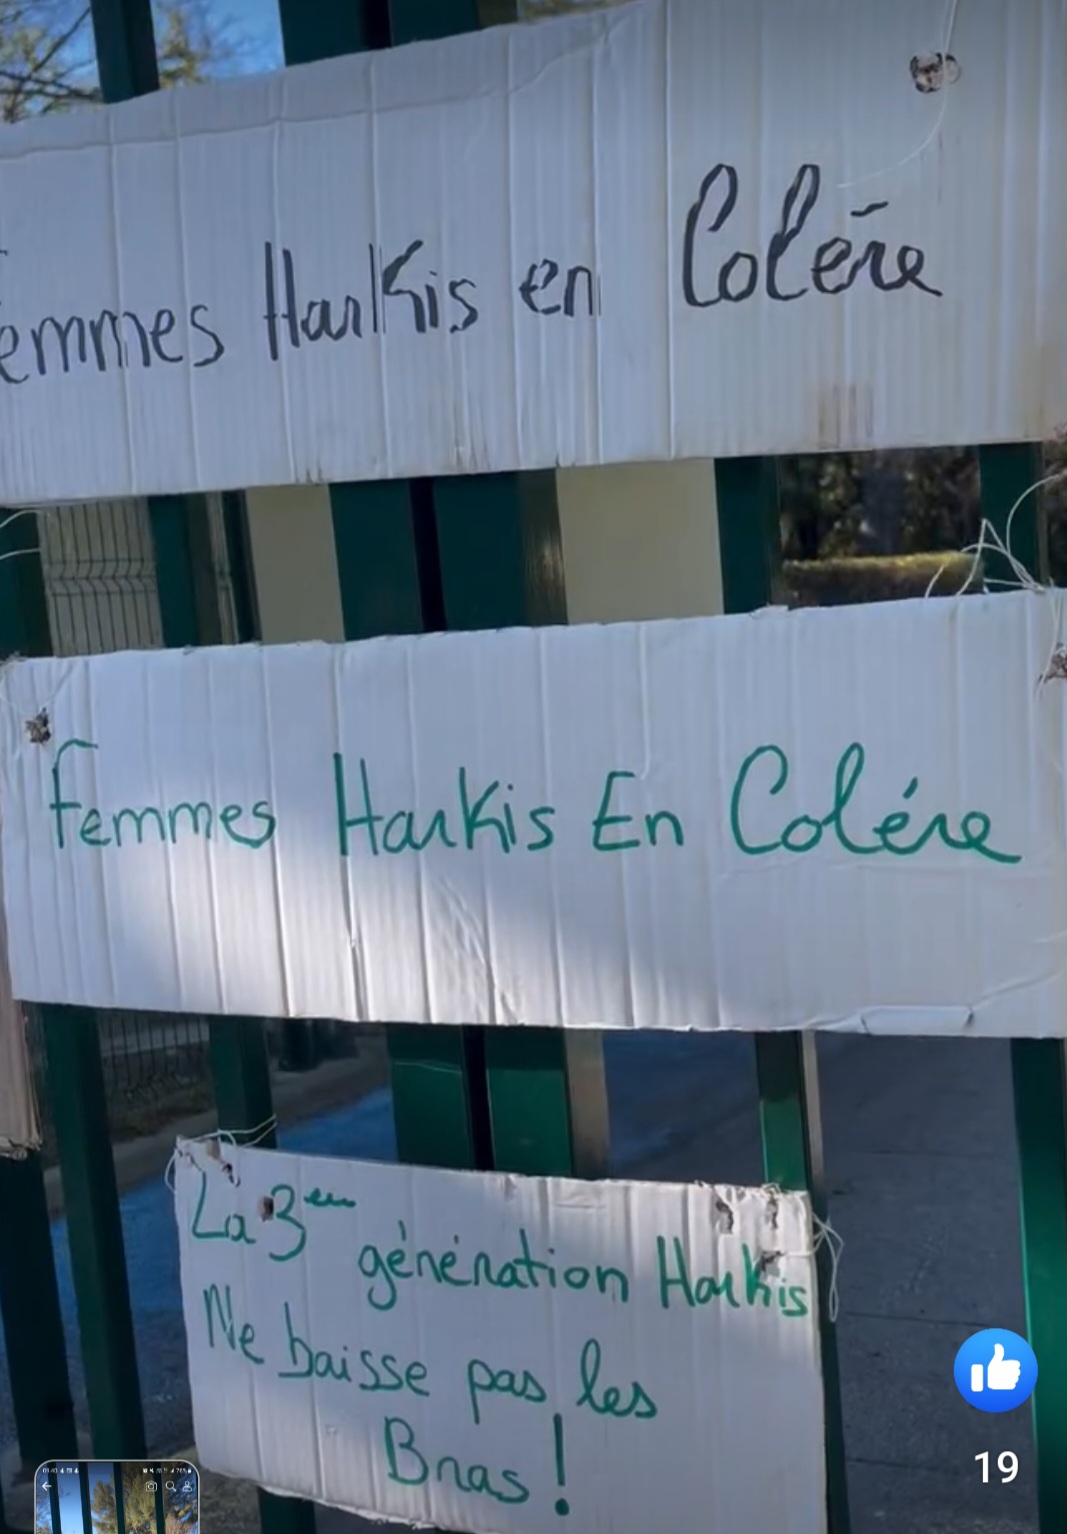 Femmes Harkis en Colére
Femmes Harkis En Colére
La 3em
génération Harkis
Ne baisse pas les
Bras !
19